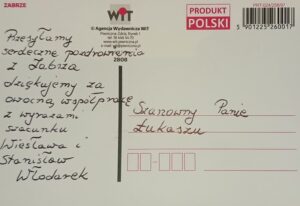 ZABRZE
WiT
© Agencja Wydawnicza WIT
www.wit.pwerzno.pl
2808
PRODUKT
POLSKI
5 901225 260017
Przesyłamy
serdeczne pozdrowienia
z Zabrza
dziękujemy za
owocną współpracę
z wyrazami
szacunku
Wiesława i
Stanisław
Włodarek
Szanowny Panie
Łukaszu